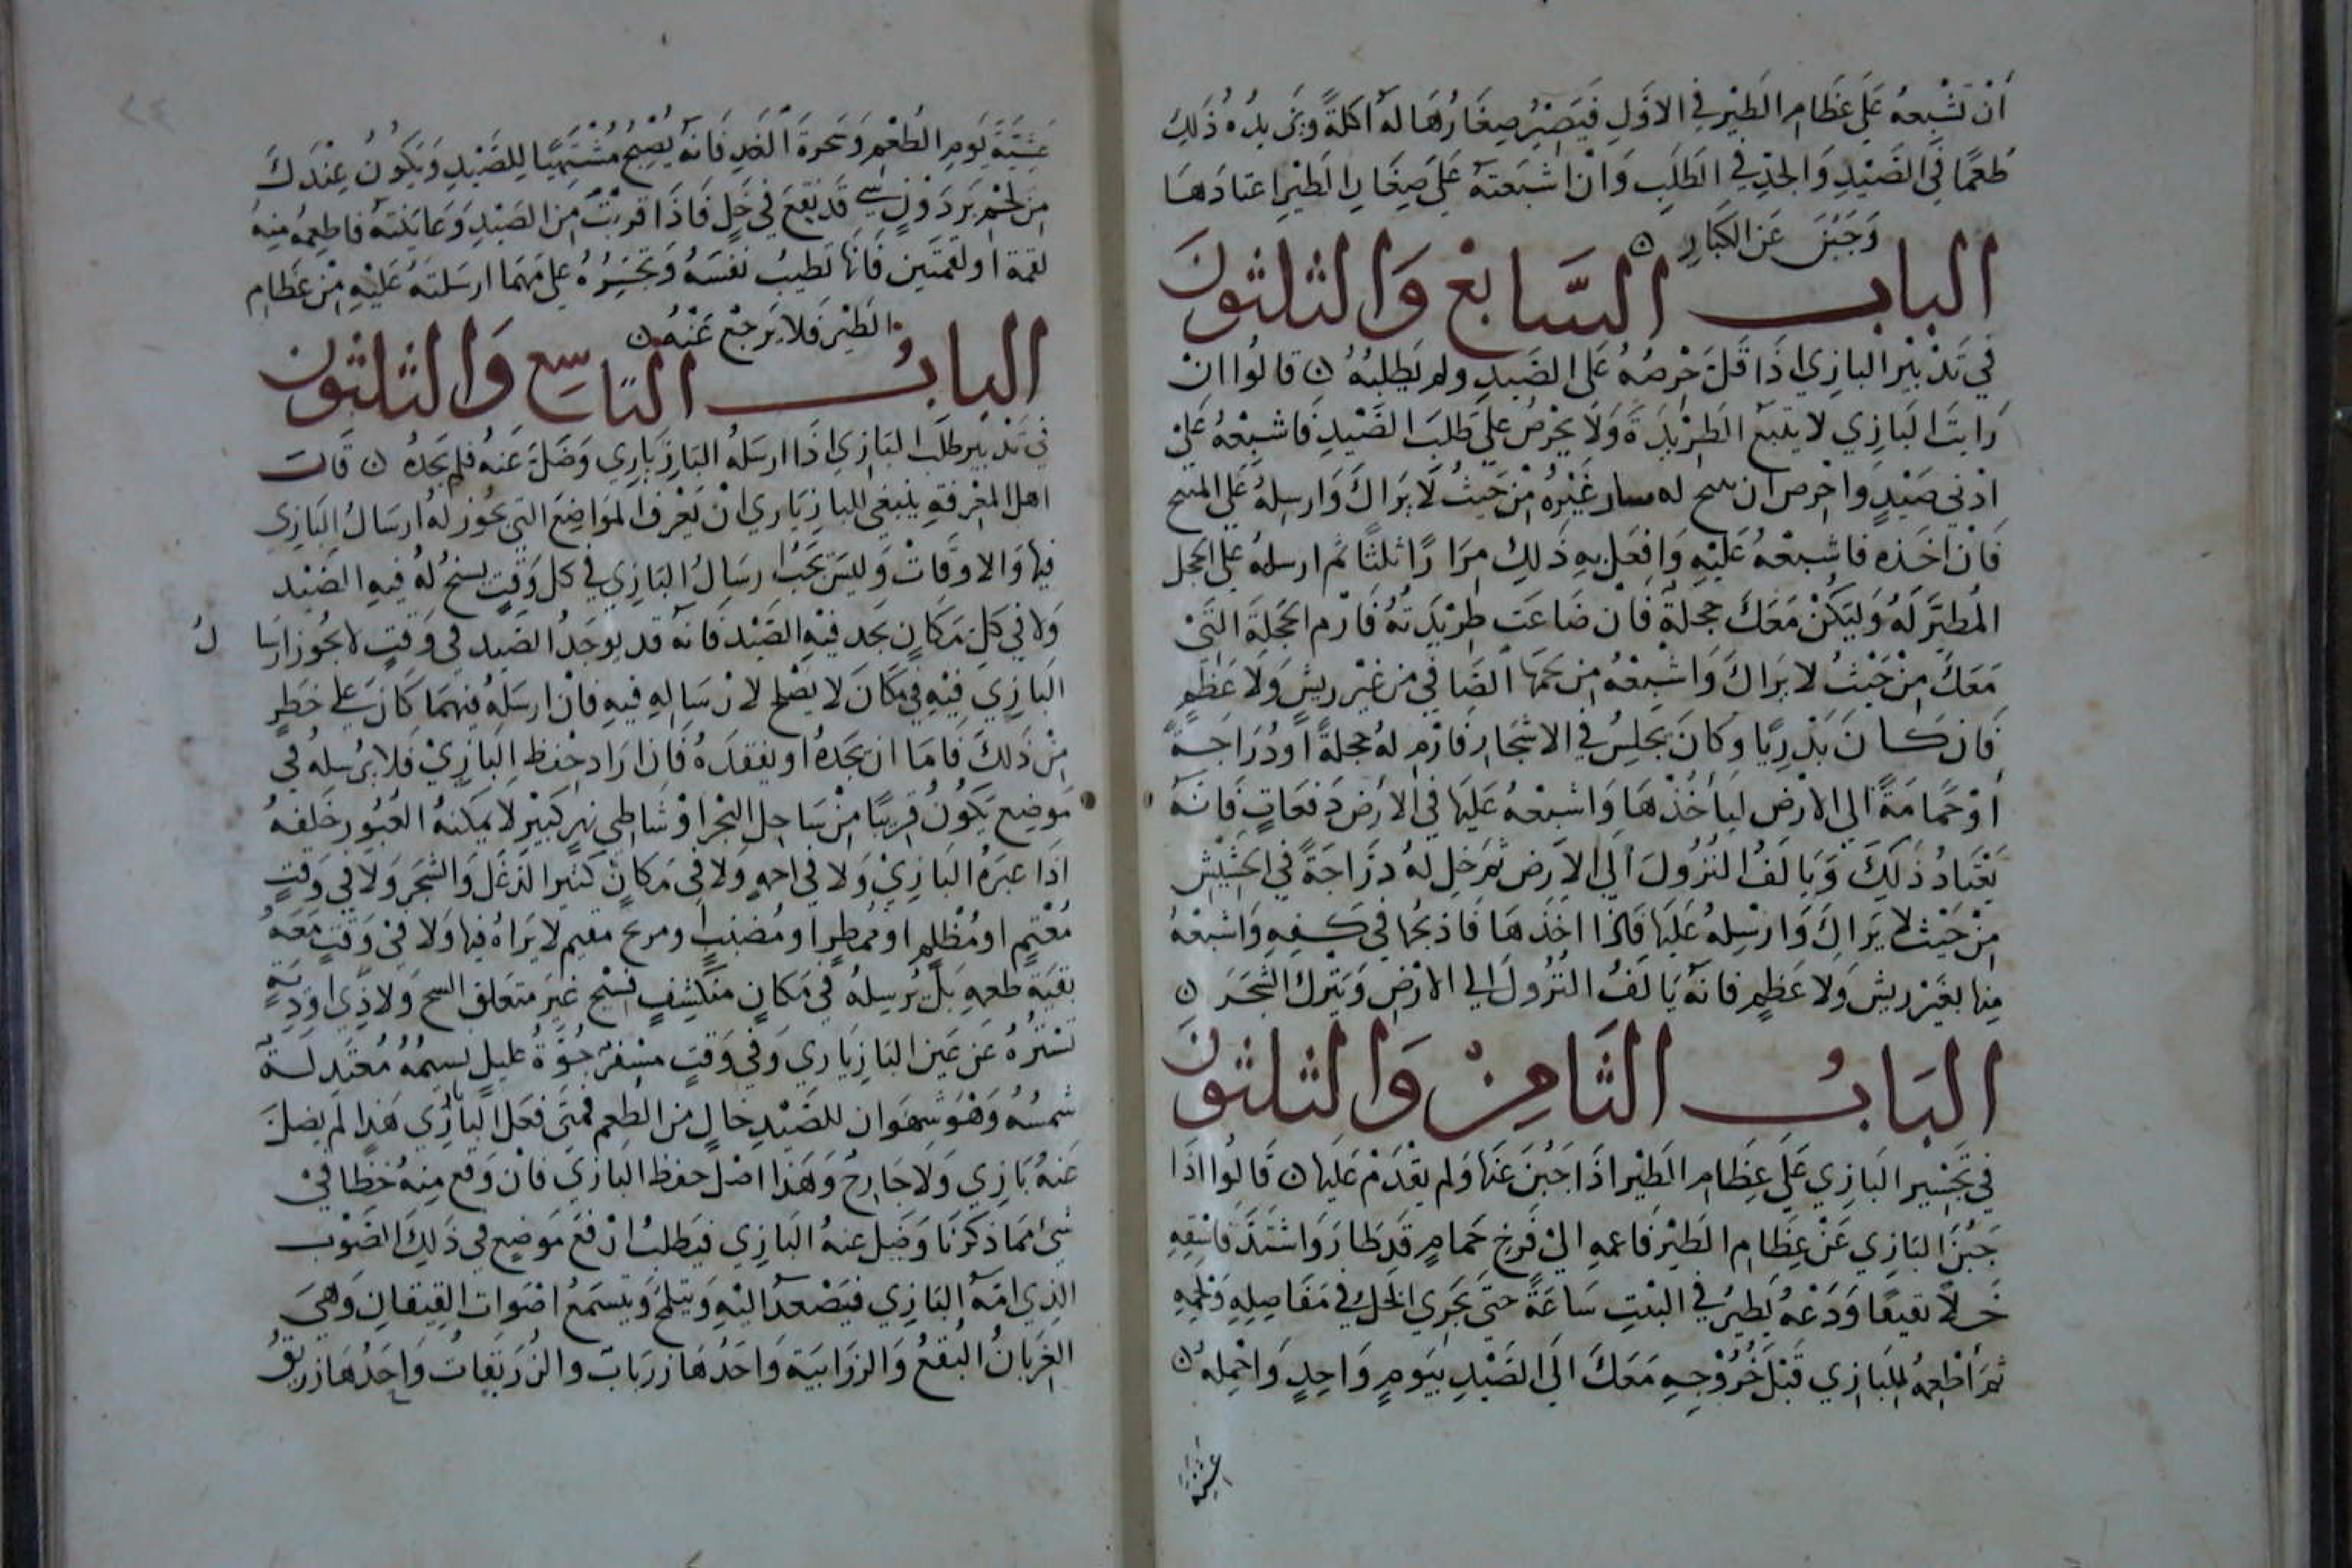 أن تشبعه على عظام الطير في الأول فيصير صغارها له أكلة ذلك
طعما في الصيد والجد في الطلب وان اشبعته على صغار الطير اعتادها
وجبن عن الكبار ن
الباب السابع والثلثون
في تدبير البازي اذا قل حرصه على الصيد ولم يطلبه ن قالوا ان
رايت البازي لا يتبع الطريدة ولا يحرص على طلب الصيد فاشبعه على
ادنى صيد واحرص ان له غيره من حيث لا يراك وارسله على
فان اخذه فاشبعه عليه وافعل به ذلك مرارا ثلثا ثم ارسله على الحجل
المطير له وليكن معك حجلة فان ضاعت طريدته فارم الحجلة التي
معك من حيث لا يراك واشبعه من لحمها الصافي من غير ريش ولا عظم
فان كان بذريا وكان يجلس في الاشجار فارم له حجلة او دراجة
أو حمامة الى الارض ليأخذها واشبعه عليها في الارض دفعات فانه
يعتاد ذلك ويالف النزول الى الارض ثم خل له دراجة في الحشيش
من حيث لا يراك وارسله عليها فاذا اخذها فاذبحها في كفه واشبعه
منها بغير ريش ولا عظم فانه يالف النزول الى الارض ويترك الشجر ن
الباب الثامن والثلثون
في تجسير البازي على عظام الطير اذا جبن عنها ولم يقدم عليها ن قالوا اذا
جبن البازي عن عظام الطير فاعمد الى فرخ حمام قد طار واشتد فاسقه
خلا نقيعا ودعه يطير في البيت ساعة حتى يجري الخل في مفاصله ولحمه
ثم أطعمه للبازي قبل خروجه معك الى الصيد بيوم واحد واحمله ن
عشية
عشية يوم الطعم وسحرة الغد فانه يصبح مشتهيا للصيد ويكون عندك
من لحم برذون قد نقع في خل فاذا قربت من الصيد وعاينته فاطعمه منه
لقمة او لقمتين فانها تطيب نفسه وتجسره على مهما ارسلته عليه من عظام
الطير فلا يرجع عنه ن
الباب التاسع والثلثون
في تدبير طلب البازي اذا ارسله البازياري وضل عنه فلم يجده ن قالت
اهل المعرفة ينبغي للبازياري ان يعرف المواضع التي يجوز له ارسال البازي
فيها والاوقات وليس يجب ارسال البازي في كل وقت يسنح له فيه الصيد
ولا في كل مكان يجد فيه الصيد فانه قد يوجد الصيد في وقت لا يجوز ارسا ل
البازي فيه في مكان لا يصلح لارساله فيه فان ارسله فيهما كان على خطر
من ذلك فاما ان يجده او يفقده فان اراد حفظ البازي فلا يرسله في
موضع يكون قريبا من ساحل البحر او شاطي نهر كبير لا يمكنه العبور خلفه
اذا عبره البازي ولا في اجمة ولا في مكان كثير الدغل والشجر ولا في وقت
مغتم او مظلم او ممطر او مضبب لا يراه فيها ولا في وقت معه
بقية طعمه بل يرسله في مكان منكشف فسيح غير ولا ذي اودية
تستره عن عين البازياري وفي وقت مسفر جوه عليل نسيمه معتدلة
شمسه وهو شهوان للصيد خال من الطعم فمتى فعل البازياري هذا لم يضل
عنه بازي ولا جارح وهذا اصل حفظ البازي فان وقع منه خطا في
شي مما ذكرنا وضل عنه البازي فيطلب ارفع موضع في ذلك الصوب
الذي امه البازي فيصعد اليه ويتلمح ويتسمع اصوات القيقان وهي
الغربان البقع والزرابية واحدها زرياب والزريقات واحدها زريق